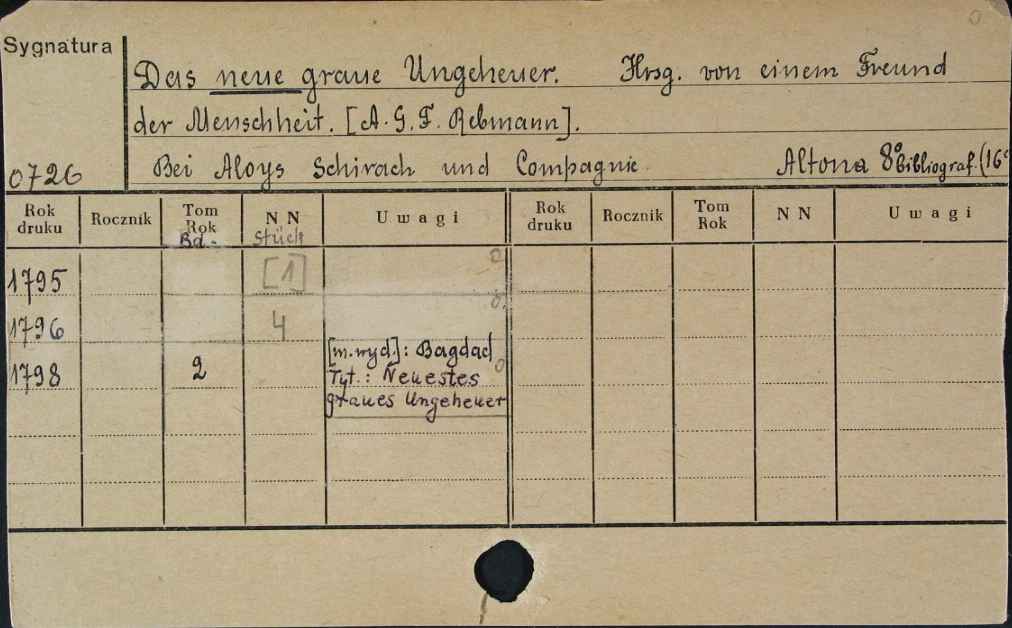 Sygnatura
Das neue graue Ungeheuer. Hrsg. von einem Freund
der Menschheit. [A. G. F. Rebmann].
0726 Bei Aloys Schirach und Compagnie. Altona 8° bibliograf. (16°
Rok druku Rocznik Tom Rok N N U w a g i Rok druku Rocznik Tom Rok N N U w a g i
Bd. Stück
1795 [1]
1796 4
1798 2 [m. wyd.]: Bagdad
Tyt.: Neuestes
graues Ungeheuer